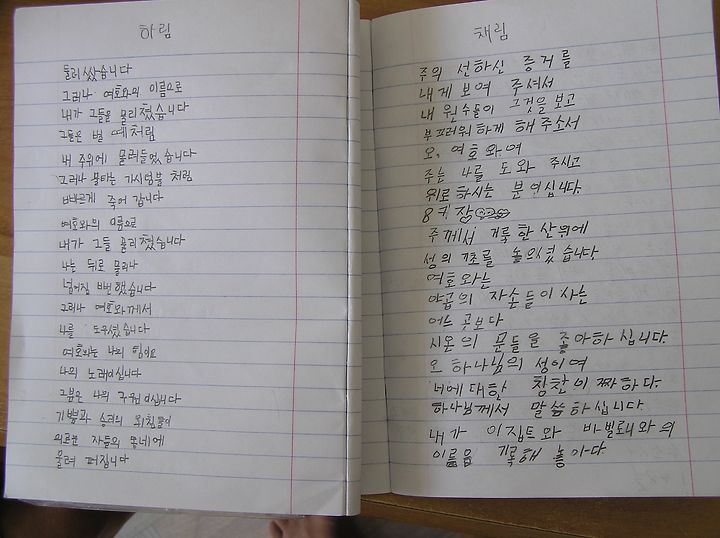 하림
둘러쌌습니다
그러나 여호와의 이름으로
내가 그들을 물리쳤습니다
그들은 벌 떼처럼
내 주위에 몰려들었습니다
그러나 불타는 가시덤불 처럼
빠르게 죽어 갑니다
여호와의 이름으로
내가 그들 물리쳤습니다
나는 뒤로 물러나
넘어질 뻔했습니다
그러나 여호와께서
나를 도우셨습니다
여호와는 나의 힘이요
나의 노래이십니다
그분은 나의 구원이십니다
기쁨과 승리의 외침들이
의로운 자들의 동네에
울려 퍼집니다
채림
주의 선하신 증거를
내게 보여 주셔서
내 원수들이 그것을 보고
부끄러워하게 해 주소서
오, 여호와여
주는 나를 도와 주시고
위로하시는 분이십니다.
87장
주께서 거룩한 산위에
성의 기초를 놓으셨습니다.
여호와는
야곱의 자손들이 사는
어느 곳보다
시온의 문들을 좋아하십니다.
오 하나님의 성이여
너에대한 칭찬이 자자하다.
하나님께서 말씀하십니다.
내가 이집트와 바빌로니아의
이름을 기록해 놓아다